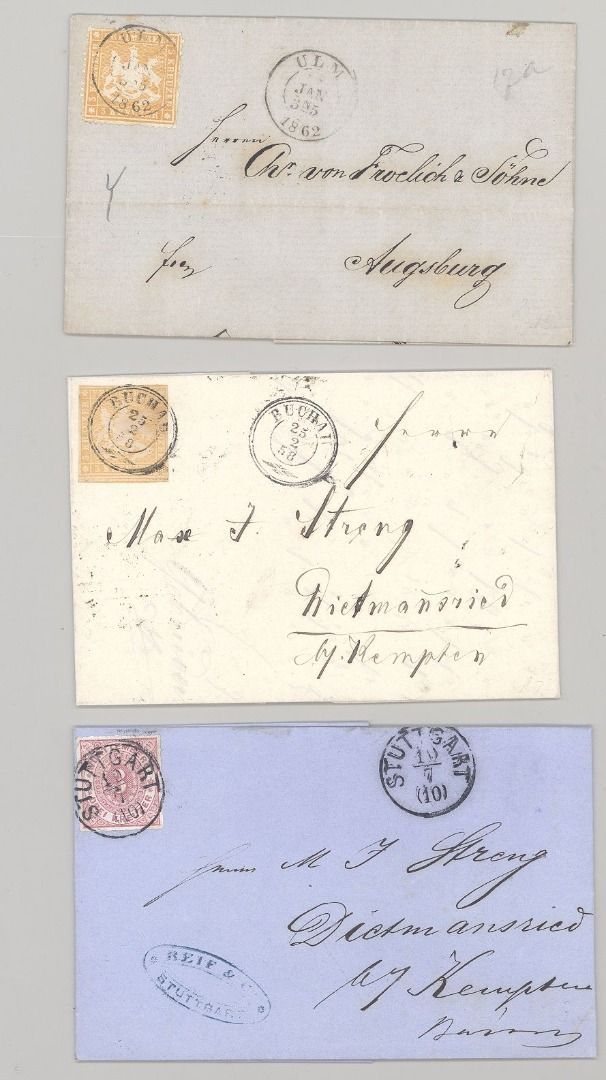 ULM
JAN
1862
ULM
JAN
1862
12a
Herren
Chr. von Froelich & Söhne
Augsburg
BUCHAU
25
2
58
BUCHAU
25
2
58
Herrn
Max J. Streng
Dietmansried
b/ Kempten
STUTTGART
(10)
STUTTGART
10
7
(10)
Herrn M J Streng
Dietmansried
b/ Kempten
REIF & C
STUTTGART